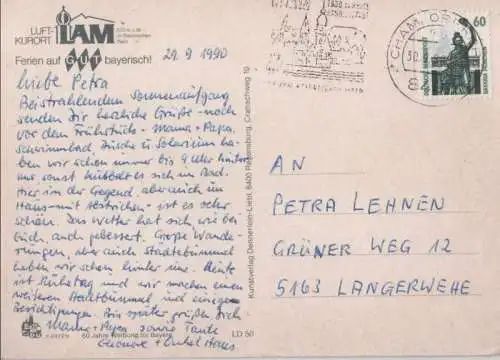 LUFT-
KURORT
LAM
im Bayerischen
Wald
Ferien auf GUT bayerisch!
29.9.1990
Liebe Petra
Bei strahlendem Sonnenaufgang
senden Dir herzliche Grüße noch
vor dem Frühstück - Mama + Papa.
Schwimmbad, Dusche u. Solarium ha-
ben wir schon immer bis 9 Uhr hinter
uns, sonst es sich im Bad.
Hier in der Gegend, aber auch im
Haus - mit Abstrichen - ist es sehr
schön. Das Wetter hat sich, wie bei
Euch, auch gebessert. Große Wande-
rungen, aber auch Städtebummel
haben wir schon hinter uns. Heute
ist Ruhetag und wir machen einen
weiteren Stadtbummel und einige
Besichtigungen. Bis später grüßen Dich
Mama + Papa sowie Tante
Eleonore + Onkel Hans
60 Jahre Werbung für Bayern
LD 50
Kunstverlag Dennerlein-Liebl, 8400 Regensburg, Cranachweg 10
CHAM, OBERPF
30.
8
60
AN
PETRA LEHNEN
GRÜNER WEG 12
5163 LANGERWEHE